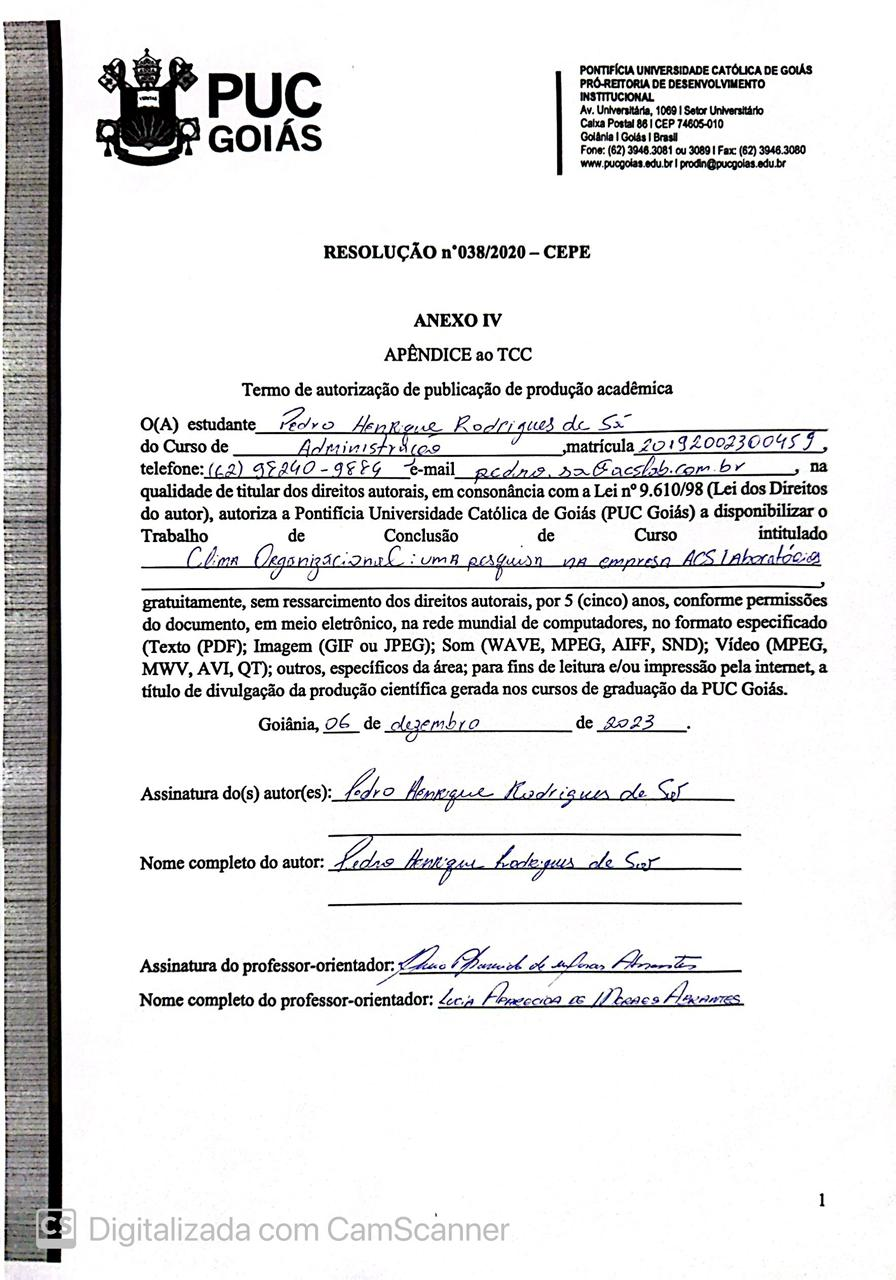 PUC
GOIÁS
PONTIFÍCIA UNIVERSIDADE CATÓLICA DE GOIÁS
PRÓ-REITORIA DE DESENVOLVIMENTO
INSTITUCIONAL
Av. Universitária, 1069 I Setor Universitário
Caixa Postal 86 I CEP 74605-010
Goiânia I Goiás I Brasil
Fone: (62) 3946.3081 ou 3089 I Fax: (62) 3946.3080
www.pucgoias.edu.br I prodin@pucgoias.edu.br
RESOLUÇÃO n°038/2020 – CEPE
ANEXO IV
APÊNDICE ao TCC
Termo de autorização de publicação de produção acadêmica
O(A) estudante Pedro Henrique Rodrigues de Sá
do Curso de Administração ,matrícula 20192002300459,
telefone: (62) 98240-9884 e-mail pedro.sa@acslab.com.br, na
qualidade de titular dos direitos autorais, em consonância com a Lei nº 9.610/98 (Lei dos Direitos
do autor), autoriza a Pontifícia Universidade Católica de Goiás (PUC Goiás) a disponibilizar o
Trabalho de Conclusão de Curso intitulado
Clima Organizacional: uma pesquisa na empresa ACS Laboratórios
,
gratuitamente, sem ressarcimento dos direitos autorais, por 5 (cinco) anos, conforme permissões
do documento, em meio eletrônico, na rede mundial de computadores, no formato especificado
(Texto (PDF); Imagem (GIF ou JPEG); Som (WAVE, MPEG, AIFF, SND); Vídeo (MPEG,
MWV, AVI, QT); outros, específicos da área; para fins de leitura e/ou impressão pela internet, a
título de divulgação da produção científica gerada nos cursos de graduação da PUC Goiás.
Goiânia, 06 de dezembro de 2023.
Assinatura do(s) autor(es): Pedro Henrique Rodrigues de Sá
Nome completo do autor: Pedro Henrique Rodrigues de Sá
Assinatura do professor-orientador: Aparecida de Moraes Abrantes
Nome completo do professor-orientador: Lucia Aparecida de Moraes Abrantes
1
CS Digitalizada com CamScanner